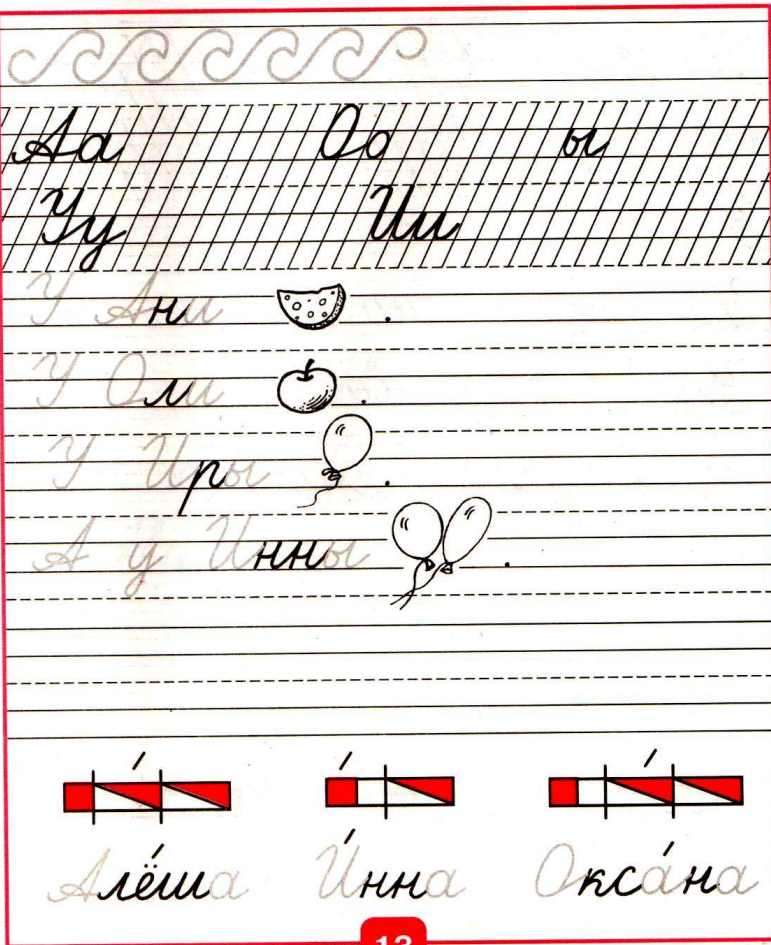 Аа Оо ы
Уу Ии
У Ани .
У Оли .
У Иры .
А у Инны .
Алёша И́нна Окса́на
13